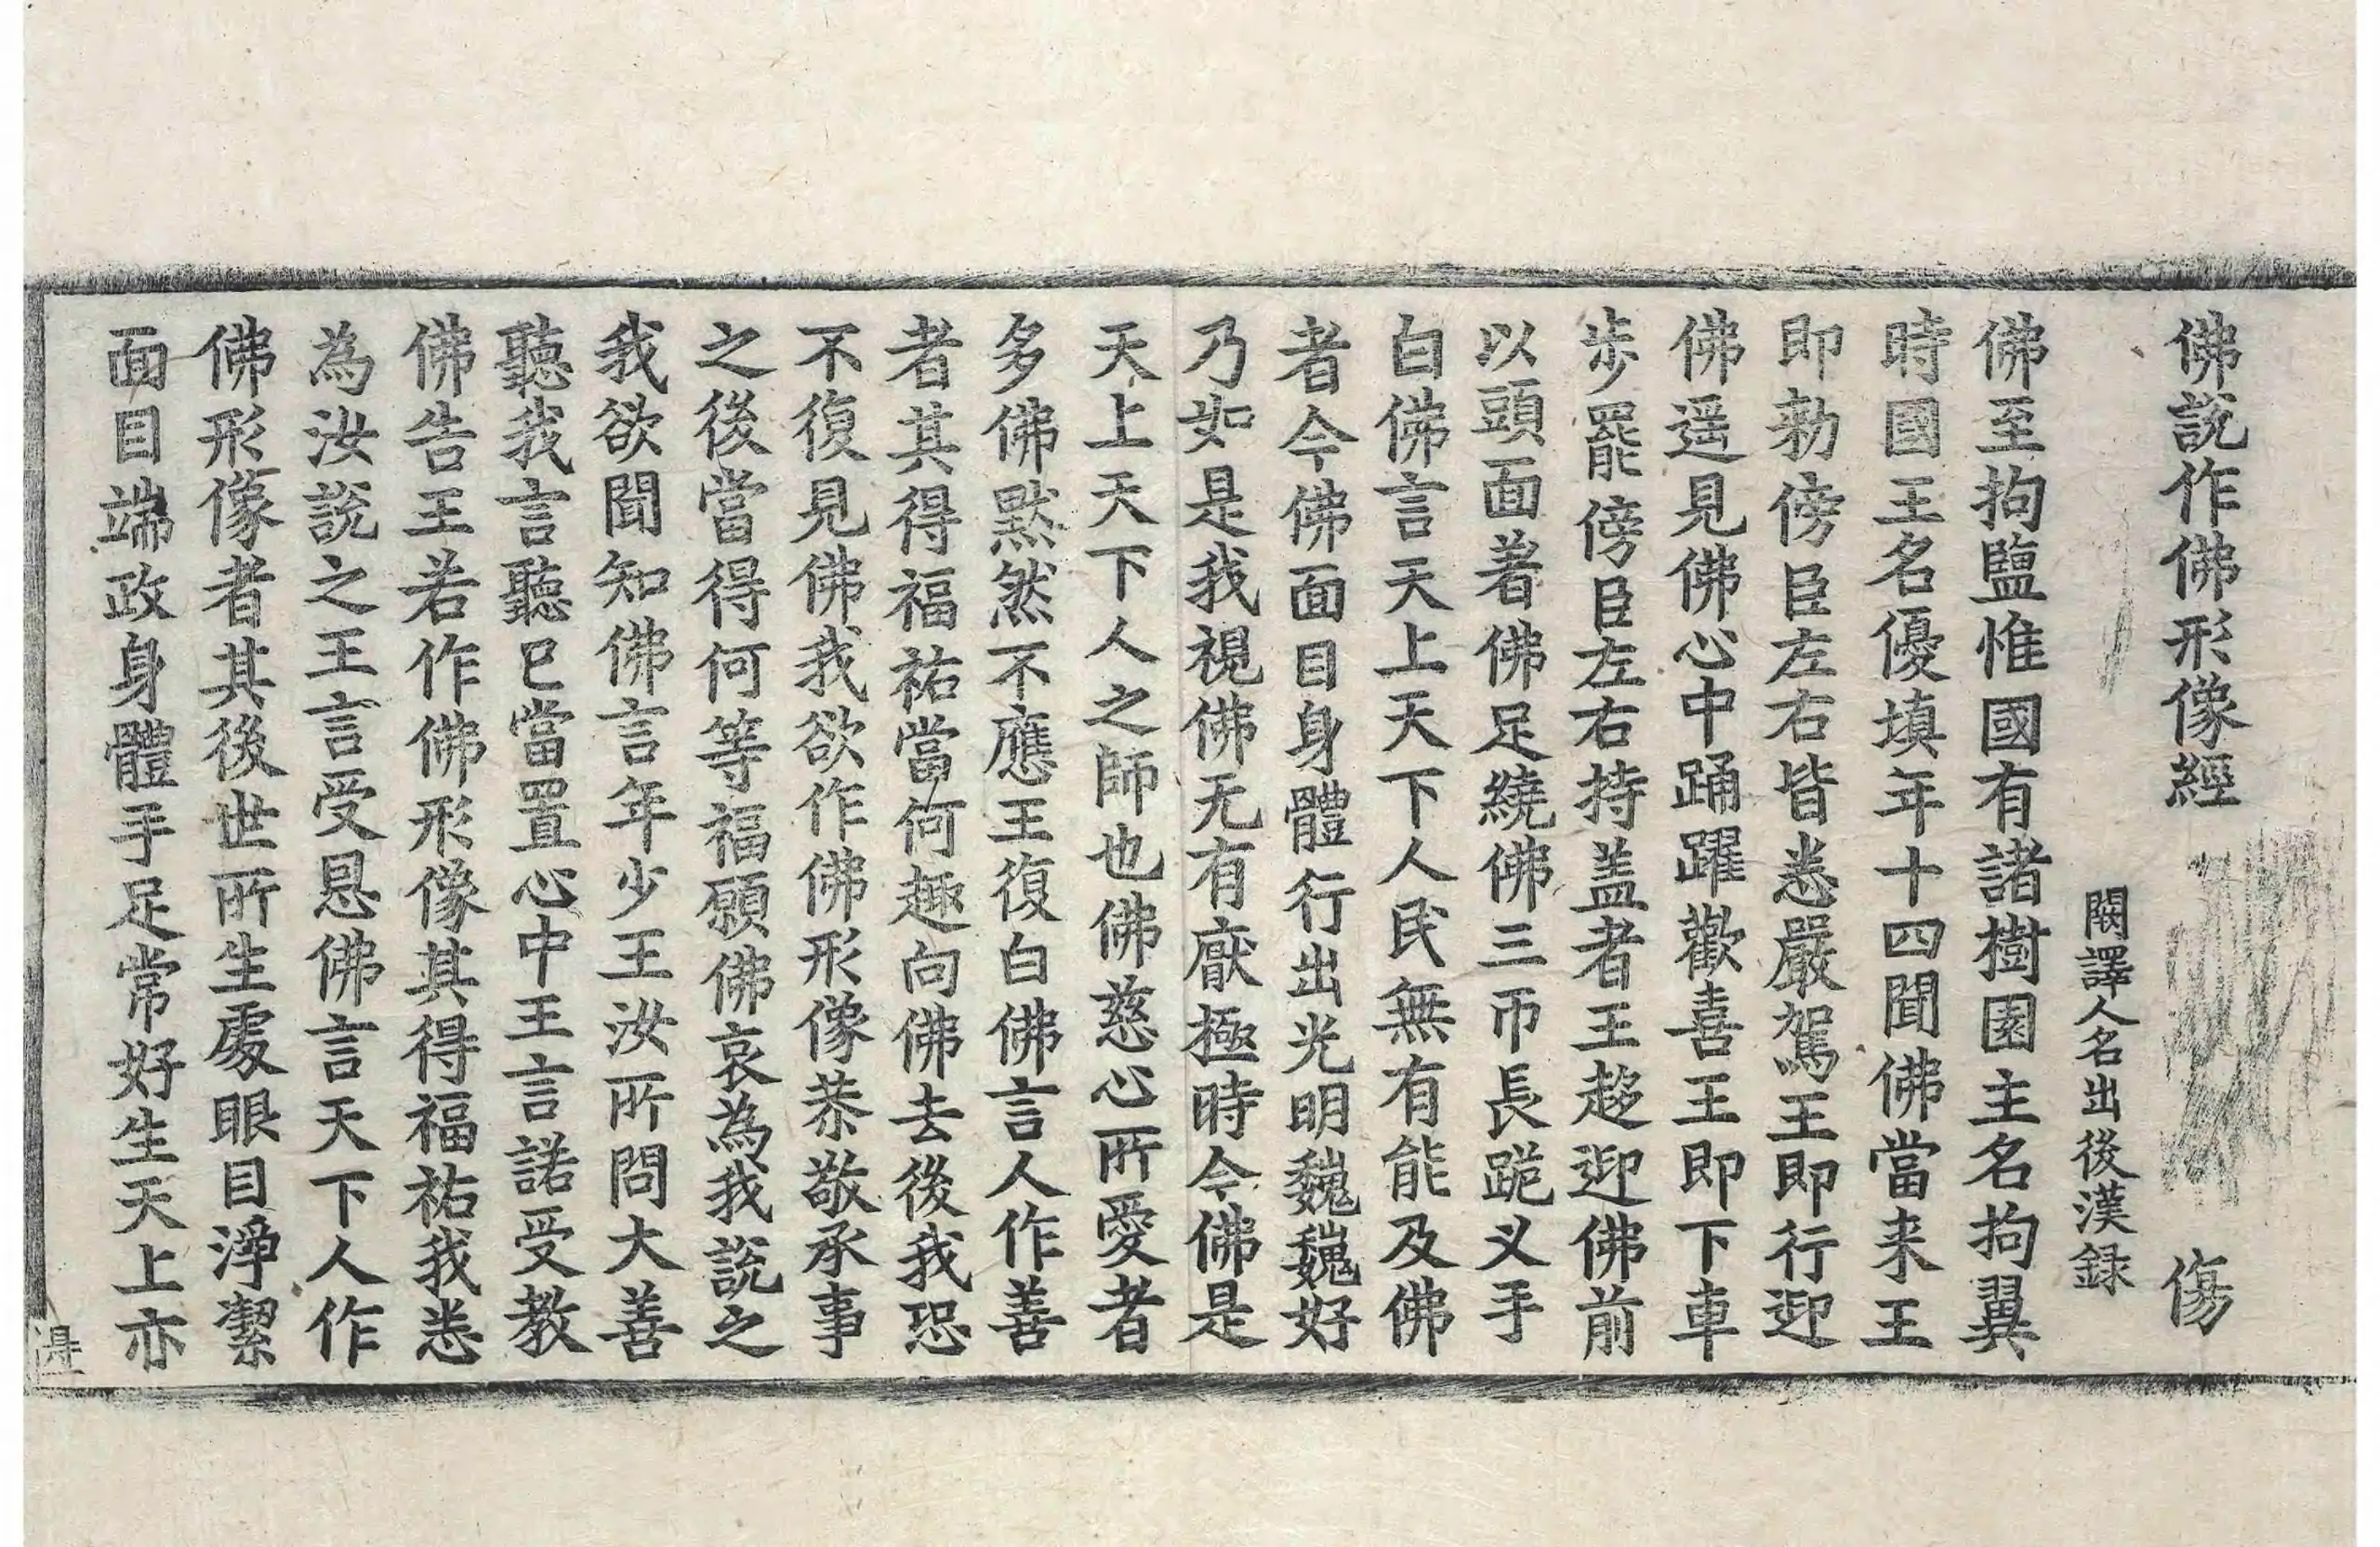 佛說作佛形像經　傷
闕譯人名出後漢録
佛至拘鹽惟國有諸樹園主名拘翼
時國王名優填年十四聞佛當来王
即勑傍臣左右皆悉嚴駕王即行迎
佛遥見佛心中踊躍歡喜王即下車
歩罷傍臣左右持盖者王趍迎佛前
以頭面著佛足繞佛三帀長跪叉手
白佛言天上天下人民無有能及佛
者今佛面目身體行出光明巍巍好
乃如是我視佛无有厭極時今佛是
天上天下人之師也佛慈心所愛者
多佛黙然不應王復白佛言人作善
者其得福祐當何趣向佛去後我恐
不復見佛我欲作佛形像恭敬承事
之後當得何等福願佛哀為我說之
我欲聞知佛言年少王汝所問大善
聽我言聽已當置心中王言諾受教
佛告王若作佛形像其得福祐我悉
為汝說之王言受恩佛言天下人作
佛形像者其後世所生處眼目淨潔
面目端政身體手足常好生天上亦